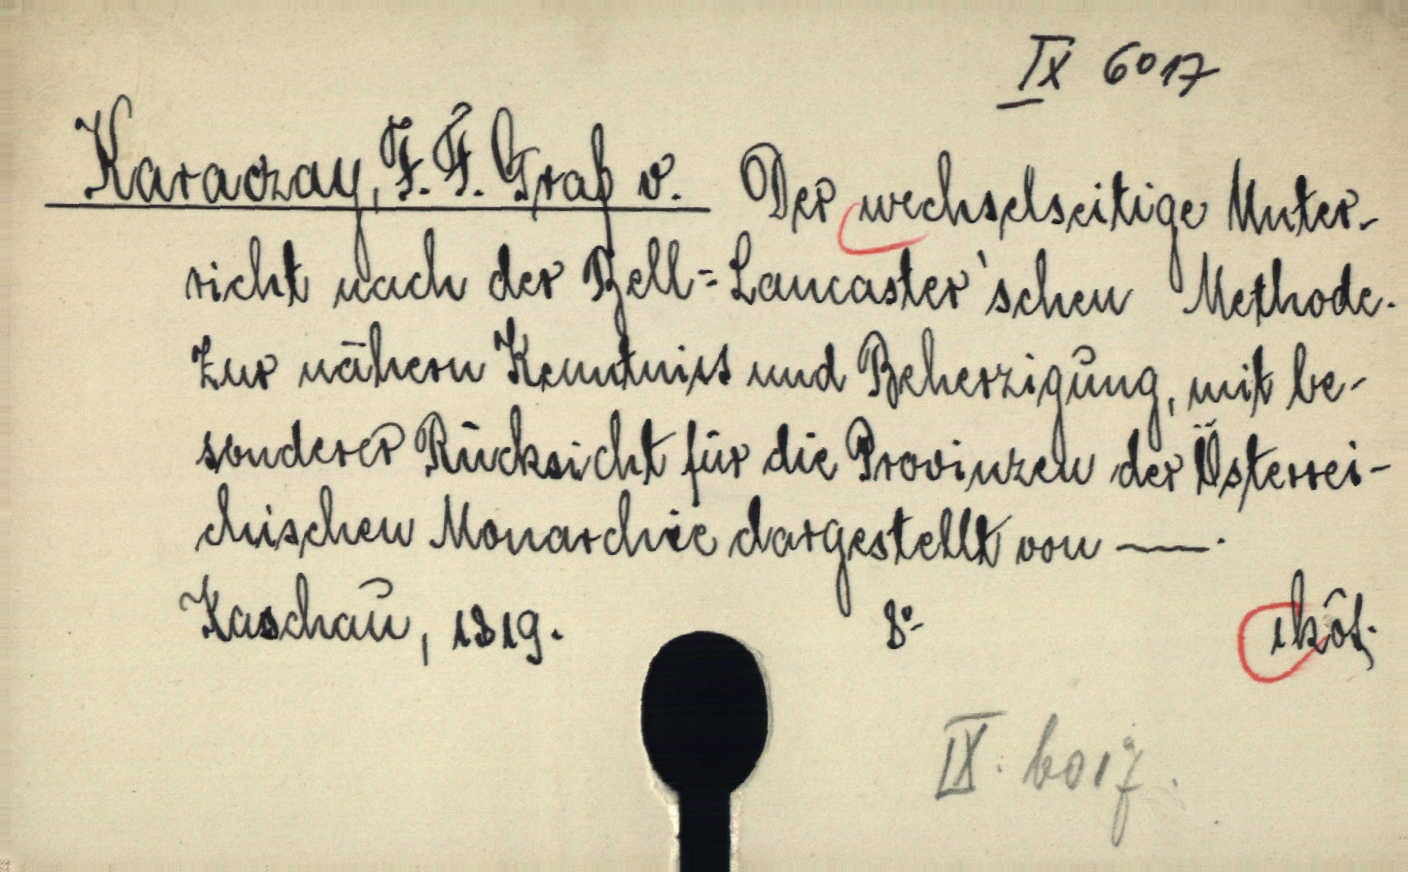 IX 6017
Karaczay, F. F. Graf v. Der wechselseitige Unter-
richt nach der Bell-Lancaster'schen Methode.
Zur nähern Kenntniss und Beherzigung, mit be-
sonderer Rücksicht für die Provinzen der Österrei-
chischen Monarchie dargestellt von —.
Kaschau, 1819. 8° 1köt.
IX. 6017.